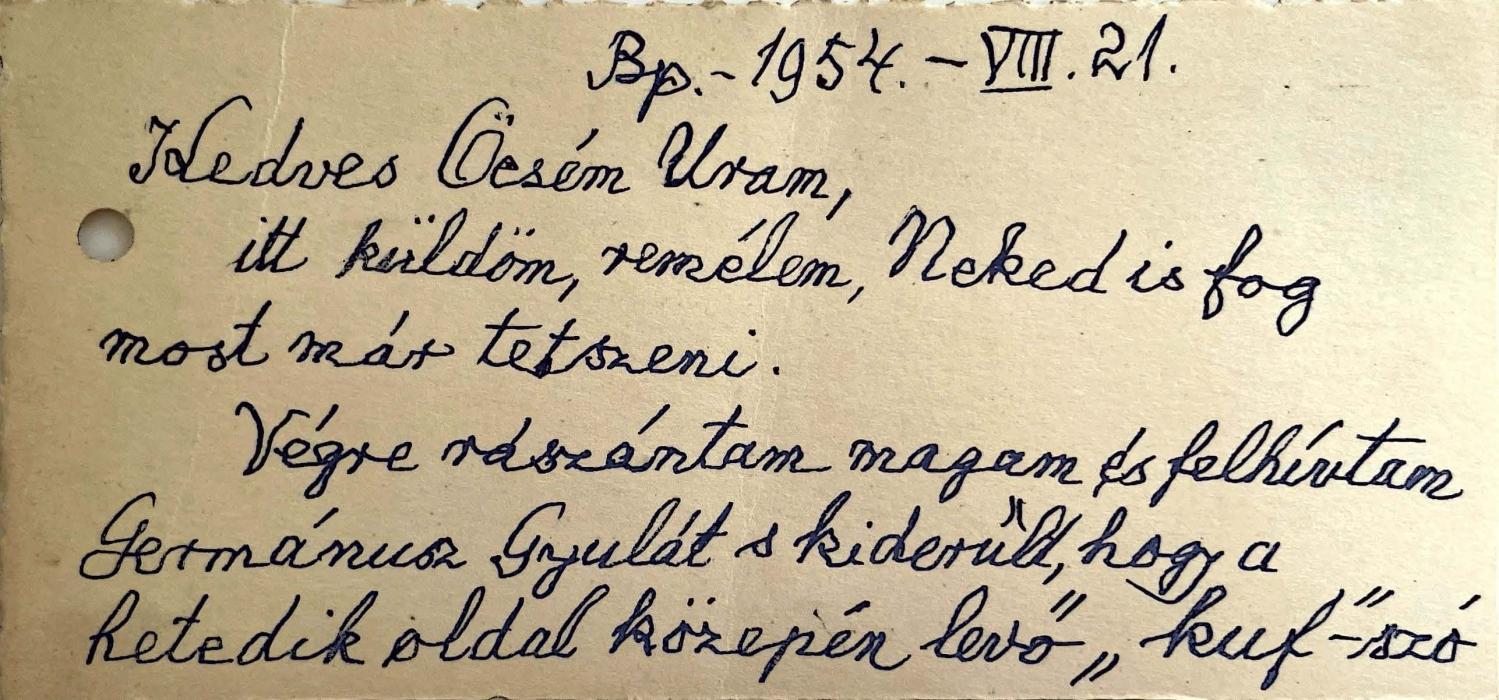 Bp.-1954.-VIII.21.
Kedves Öcsém Uram,
itt küldöm, remélem, Neked is fog
most már tetszeni.
Végre rászántam magam és felhívtam
Germánusz Gyulát s kiderűlt, hogy a
hetedik oldal közepén levő „kuf”-szó